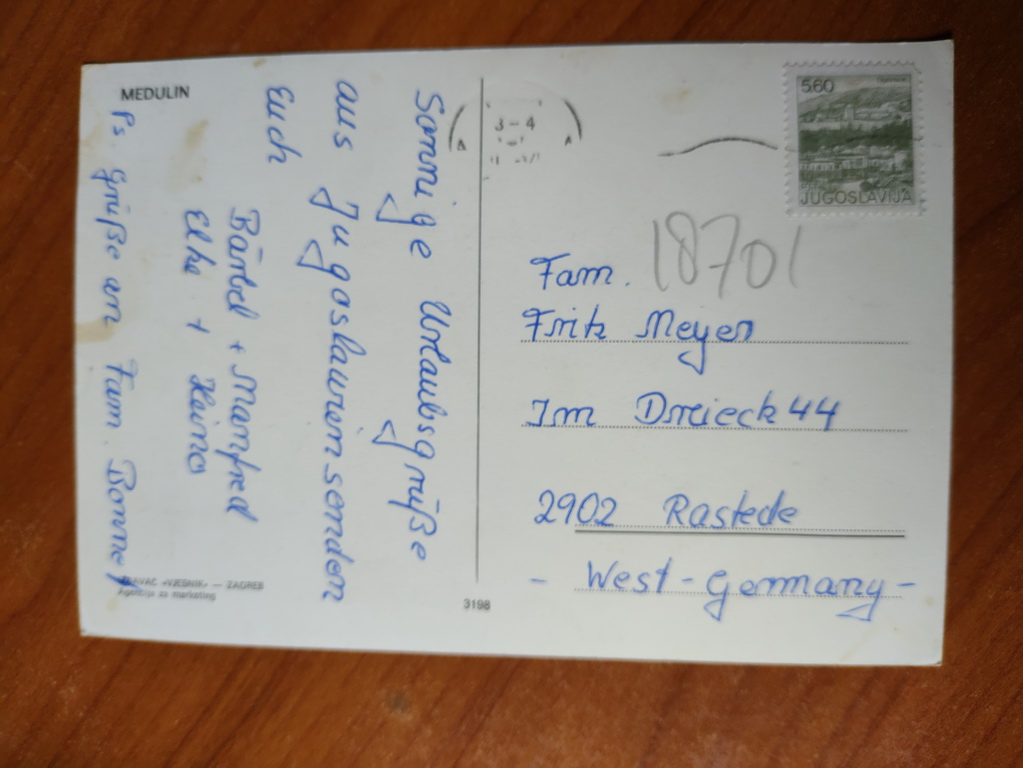 MEDULIN
Sonnige Urlaubsgrüße
aus Jugoslawien senden
Euch
Bärbel + Manfred
Elke + Heino
Ps. Grüße an Fam. Bonney
«VJESNIK» — ZAGREB
Agencija za marketing
3198
3-4
A A
5.60
JUGOSLAVIJA
18701
Fam.
Fritz Meyer
Im Dreieck 44
2902 Rastede
- West-Germany -